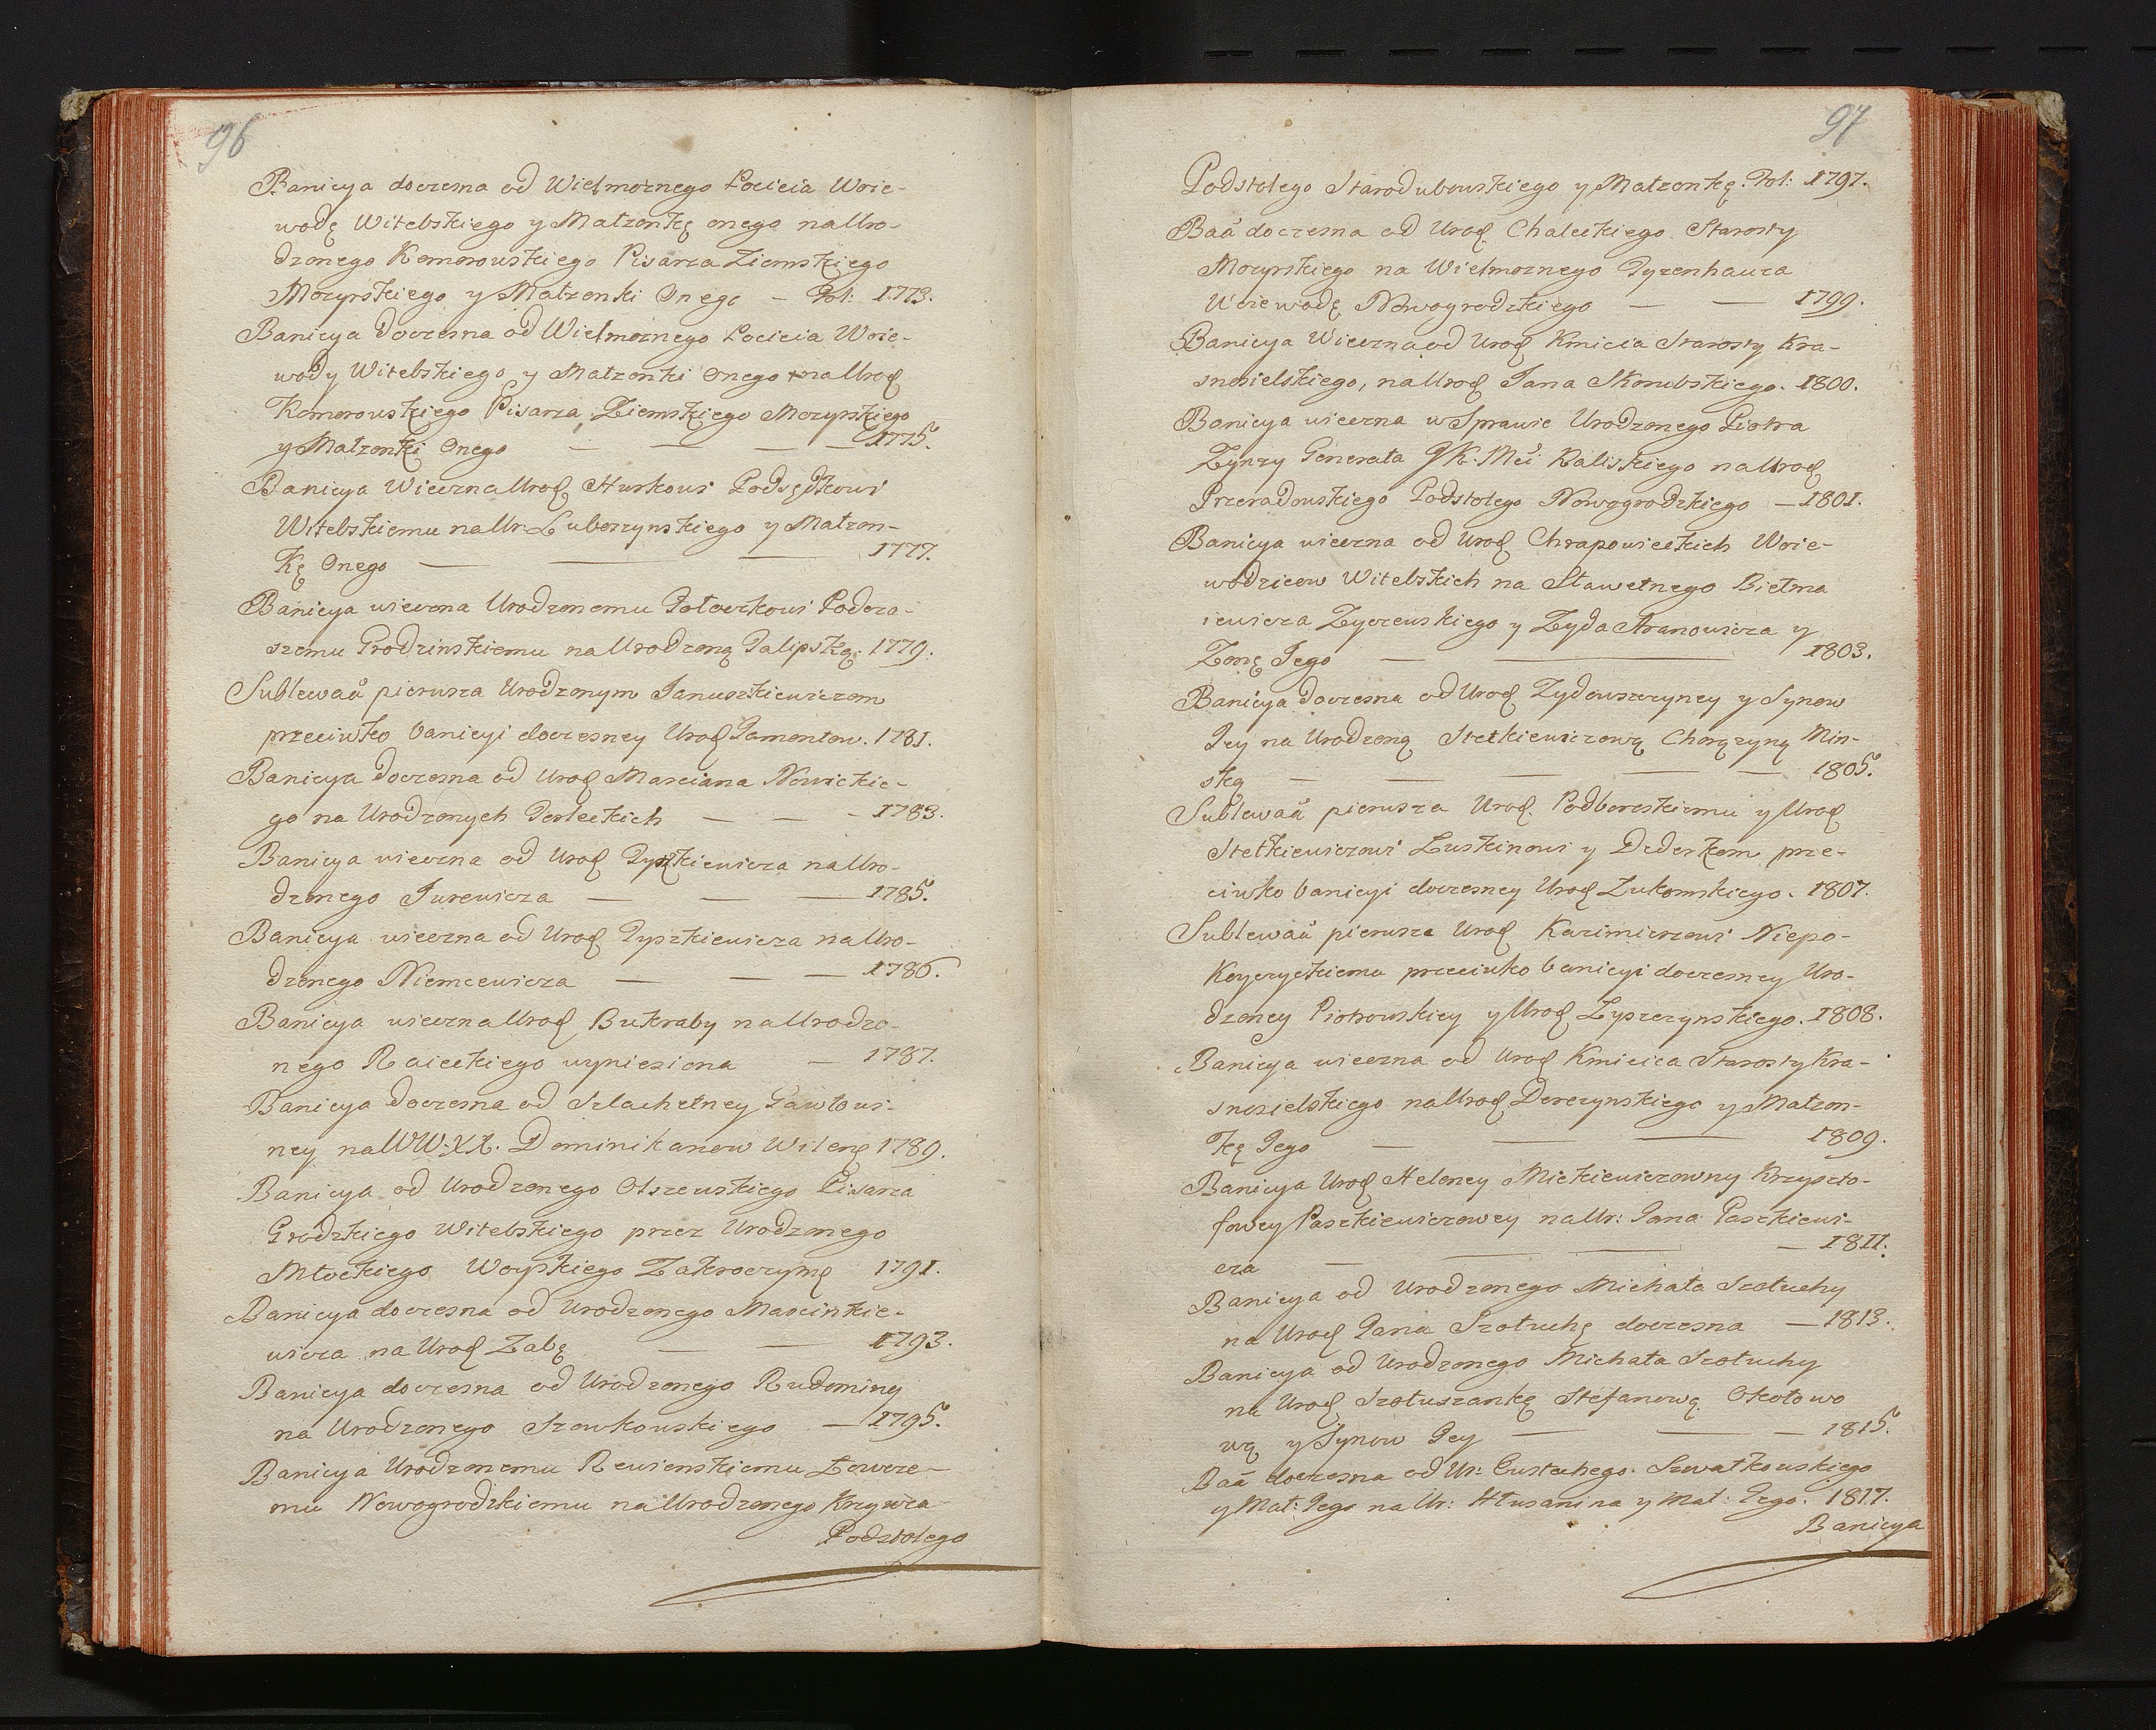 96
Banicya doczesna od Wielmoznego Pocieia Woie-
wodę Witebskiego y Małzonkę onego na Uro-
dzonego Komorowskiego Pisarza Ziemskiego
Mozyrskiego y Małzonki Onego – Fol: 1773.
Banicya doczesna od Wielmoznego Pocieia Woie-
wody Witebskiego y Małzonki Onego na Urod
Komorowskiego Pisarza Ziemskiego Mozyrskiego
y Małzonki Onego — — — 1775.
Banicya Wieczna Urod Hurkowi Podsędkowi
Witebskiemu na Ur: Luberzynskiego y Małzon-
kę Onego — — — 1777.
Banicya wieczna Urodzonemu Podcza-
szemu Grodzinskiemu na Urodzoną Palipską. 1779.
Sublewaã pierwsza Urodzonym Januszkiewiczom
przeciwko banicyi doczesney Urod Pamontow. 1781.
Banicya doczesna od Urod Marciana Nowickie-
go na Urodzonych Gorleckich — — - 1783.
Banicya wieczna od Urod Tyszkiewicza na Uro-
dzonego Jurewicza — — — 1785.
Banicya wieczna od Urod Tyszkiewicza na Uro-
dzonego Niemcewicza — — — 1786.
Banicya wieczna Urod Bukraby na Urodzo-
nego Raieckiego wyniesiona — 1787.
Banicya doczesna od Szlachetney Pawłowi-
ney na WW: XX. Dominikanow Wilen 1789.
Banicya od Urodzonego Olszewskiego Pisarza
Grodzkiego Witebskiego przez Urodzonego
Młockiego Woyskiego Zakroczym 1791.
Banicya doczesna od Urodzonego Marcinkie-
wicza na Urod Zabę — — 1793.
Banicya doczesna od Urodzonego Rudominy
na Urodzonego Szewkowskiego — 1795.
Banicya Urodzonemu Rewienskiemu Łowcze-
mu Nowogrodzkiemu na Urodzonego Krzywca
Podstolego
97
Podstolego Starodubowskiego y Małzonkę. Fol: 1797.
Baã doczesna od Urod Chaleckiego Starosty
Mozyrskiego na Wielmoznego Tyzenhauza
Woiewodę Nowogrodzkiego — — 1799.
Banicya Wieczna od Urod Kmicia Starosty Kra-
snosielskiego, na Urod Jana Skorubskiego. 1800.
Banicya wieczna w Sprawie Urodzonego Piotra
Zynzy Generała JK: Mci Kaliskiego na Urod
Przeradowskiego Podstolego Nowogrodzkiego — 1801.
Banicya wieczna od Urod Chrapowieckich Woie-
wodzicow Witebskich na Sławetnego Bielma
iewicza Zyczewskiego y Zyda Aranowicza y
Zonę Jego — — 1803.
Banicya doczesna od Urod Zydowszczyney y Synow
Jey na Urodzoną Stetkiewiczową Chorązyną Min-
ską — — — — — 1805.
Sublewaã pierwsza Urod. Podbereskiemu y Urod
Stetkiewiczowi Łuskinowi y Dederkom prze-
ciwko banicyi doczesney Urod Zukomskiego. 1807.
Sublewaã pierwsza Urod Kazimierzowi Niepo-
Koyczyckiemu przeciwko banicyi doczesney Uro-
dzoney Piotrowskiey y Urod Łyszczynskiego. 1808.
Banicya wieczna od Urod Kmicica Starosty Kra-
snosielskiego na Urod Derezynskiego y Małzon-
kę Jego — — — 1809.
Banicya Urod Heleney Mickiewiczowny Krzyszto-
fowey Paszkiewiczowey na Ur: Jana Paszkiewi-
cza — — — — 1811.
Banicya od Urodzonego Michała Szołuchy
na Urod Jana Szołuchę doczesna — 1813.
Banicya od Urodzonego Michała Szołuchy
na Urod Szołuszankę Stefanową Okołowo
wą y Synow Jey — — — 1815.
Baã doczesna od Ur: Eustachego Szwałkowskiego
y Mał: Jego na Ur: Hłusanina y Mał: Jego. 1817.
Banicya